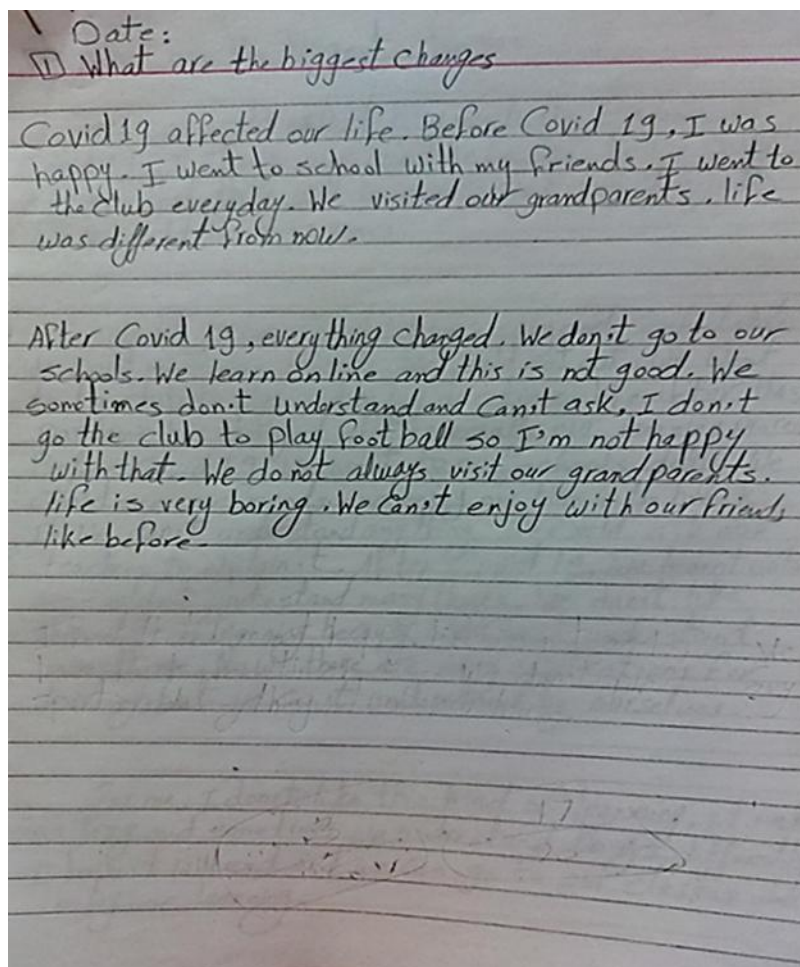 Date:
1 What are the biggest changes
Covid 19 affected our life. Before Covid 19, I was
happy. I went to school with my friends. I went to
the club everyday. We visited our grandparents. life
was different from now.
After Covid 19, everything changed. We don't go to our
schools. We learn online and this is not good. We
sometimes don't understand and can't ask. I don't
go the club to play foot ball so I'm not happy
with that. We do not always visit our grandparents.
life is very boring. We can't enjoy with our friends
like before.
17